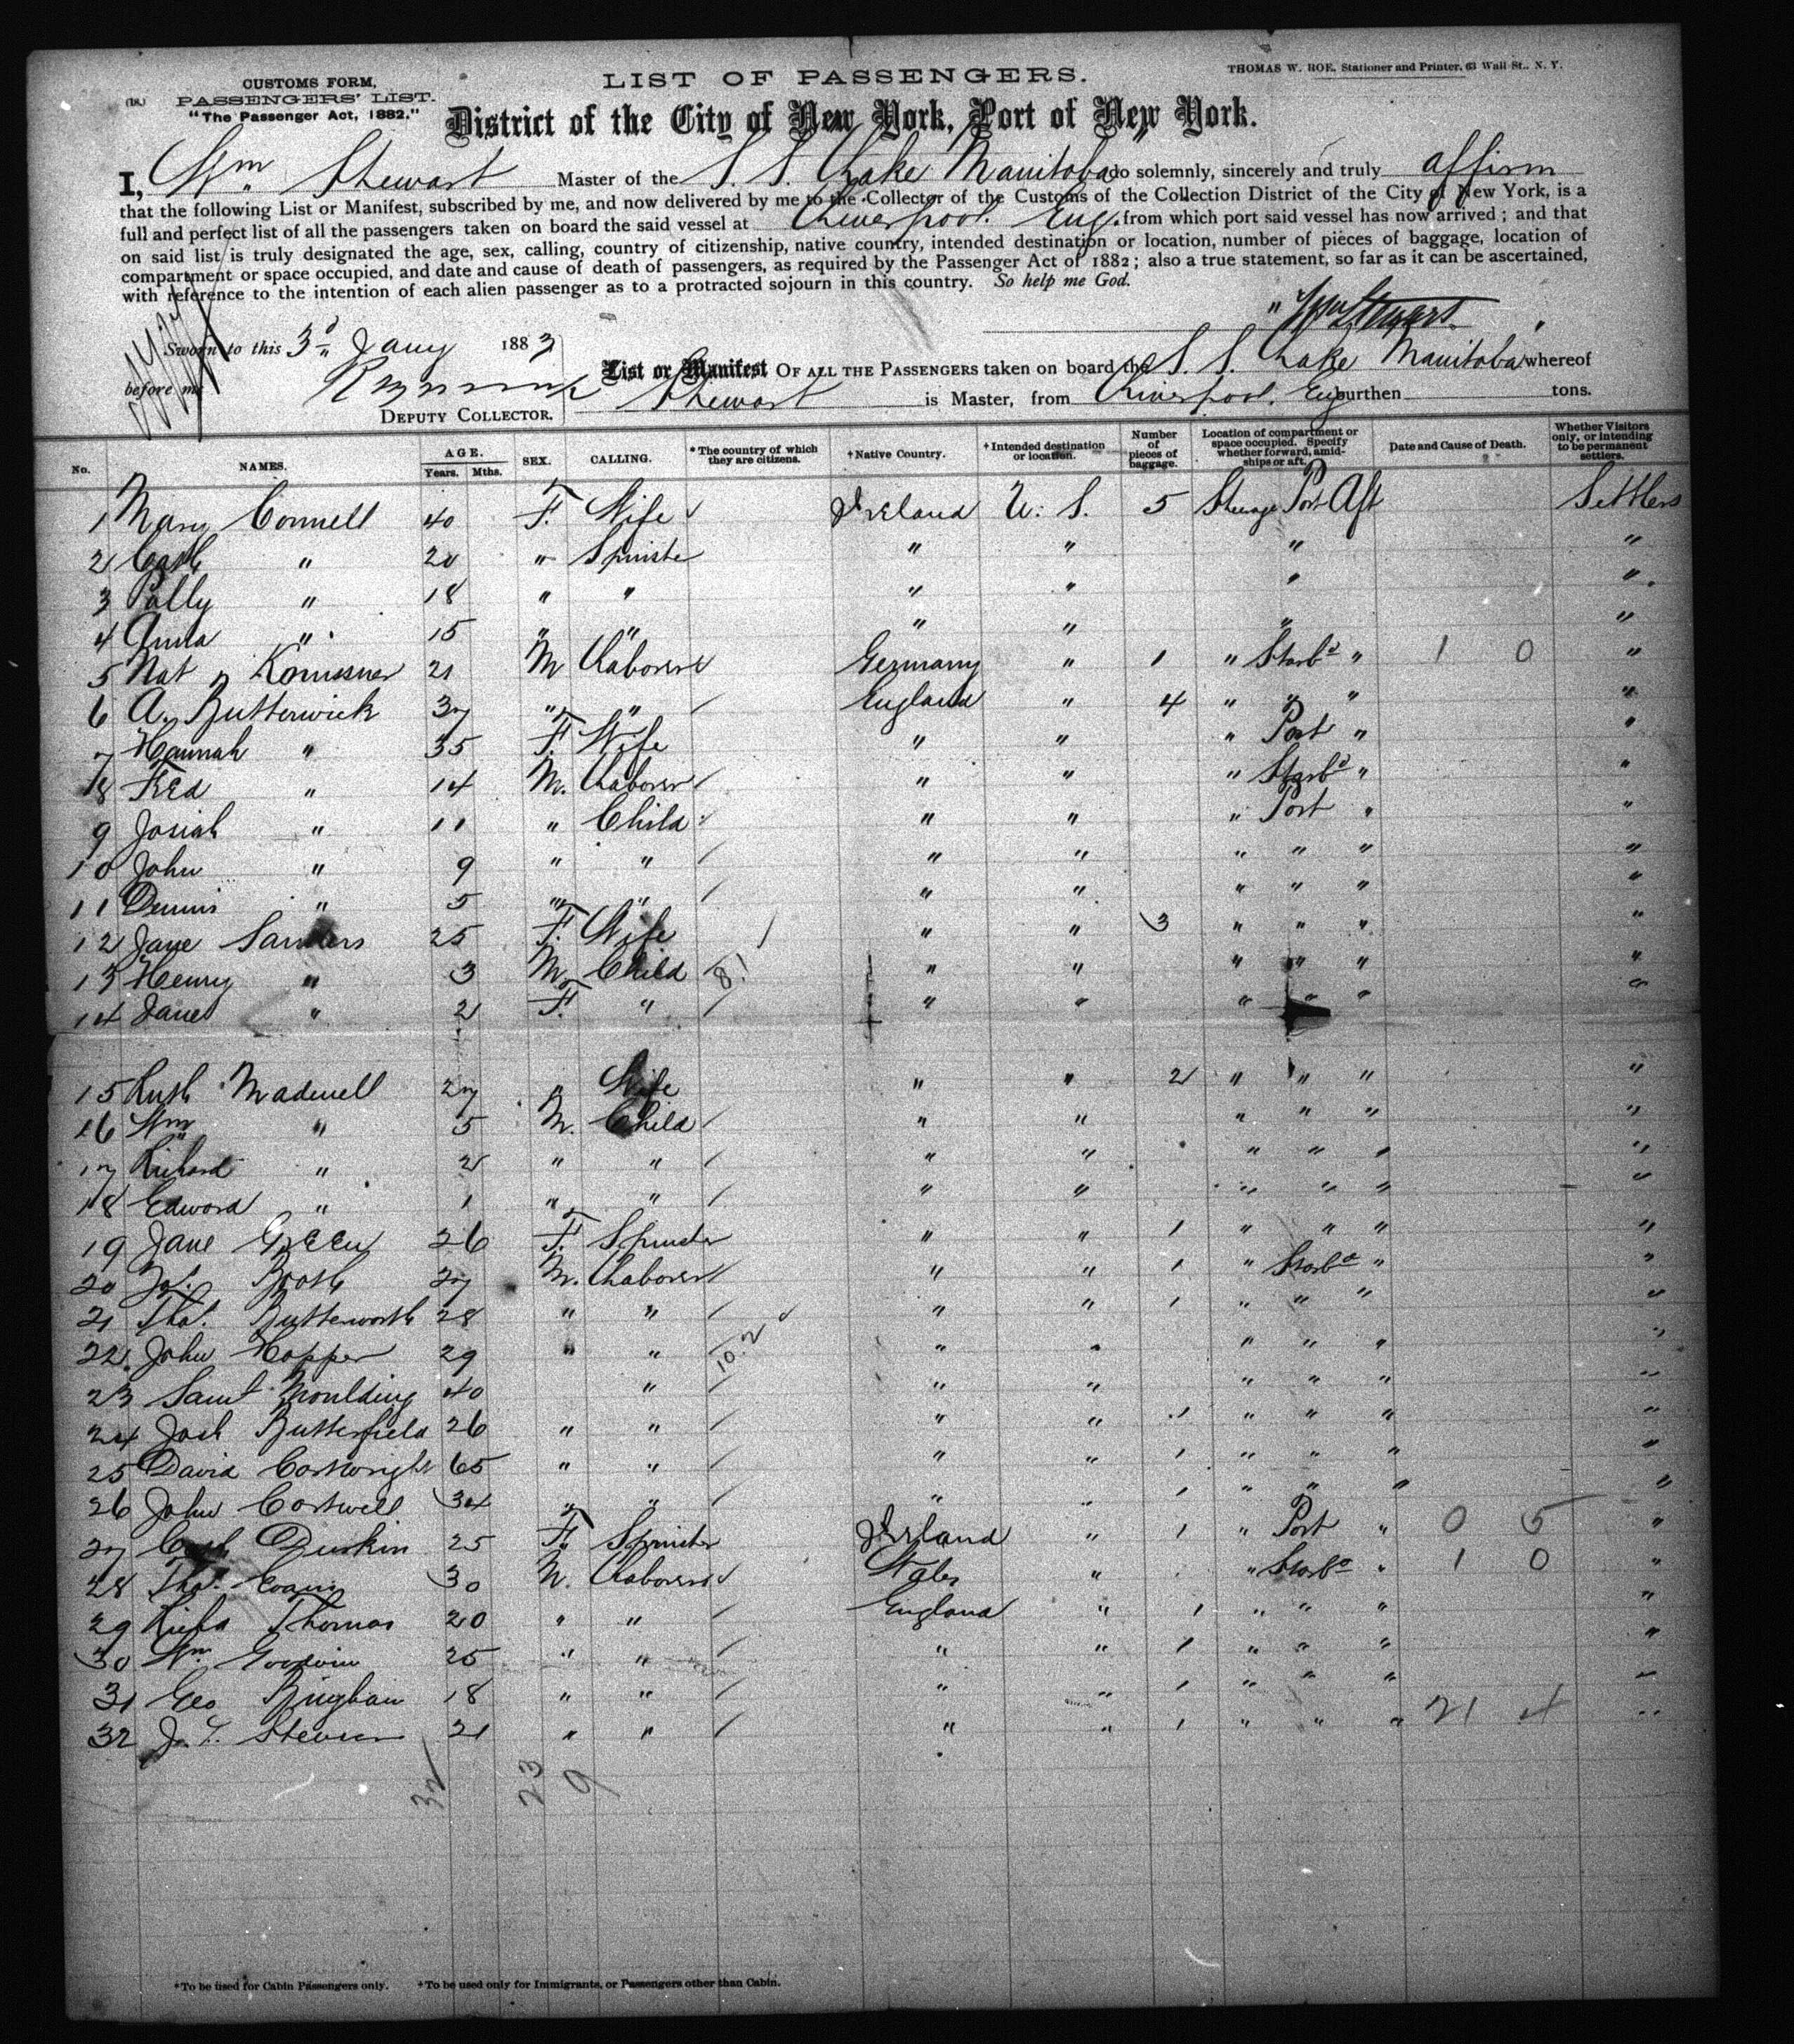 CUSTOMS FORM,
(18.) PASSENGERS' LIST.
"The Passenger Act, 1882."
LIST OF PASSENGERS.
THOMAS W. ROE, Stationer and Printer, 63 Wall St., N. Y.
District of the City of New York, Port of New York.
I, Wm Stewart Master of the S. S. Lake Manitoba do solemnly, sincerely and truly affirm
that the following List or Manifest, subscribed by me, and now delivered by me to the Collector of the Customs of the Collection District of the City of New York, is a
full and perfect list of all the passengers taken on board the said vessel at Liverpool. Eng. from which port said vessel has now arrived; and that
on said list is truly designated the age, sex, calling, country of citizenship, native country, intended destination or location, number of pieces of baggage, location of
compartment or space occupied, and date and cause of death of passengers, as required by the Passenger Act of 1882; also a true statement, so far as it can be ascertained,
with reference to the intention of each alien passenger as to a protracted sojourn in this country. So help me God.
Wm Stewart
Sworn to this 3d Jany 1883
before me
DEPUTY COLLECTOR.
List or Manifest OF ALL THE PASSENGERS taken on board the S. S. Lake Manitoba whereof
Stewart is Master, from Liverpool. Eng burthen tons.
No. NAMES. AGE. Years. Mths. SEX. CALLING. *The country of which they are citizens. †Native Country. †Intended destination or location. Number of pieces of baggage. Location of compartment or space occupied. Specify whether forward, amidships or aft. Date and Cause of Death. Whether Visitors only, or intending to be permanent settlers.
1 Mary Connell 40 F. Wife Ireland U. S. 5 Steerage Port Aft Settlers
2 Cath " 20 " Spinster " " " "
3 Polly " 18 " " " " " "
4 Anna " 15 " " " " " "
5 Nat 21 M Laborer Germany " 1 " Starbd " 1 0 "
6 A. Butterwick 37 " " England " 4 " " " "
7 Hannah " 35 F. Wife " " " Port " "
8 Fred " 14 M. Laborer " " " Starbd " "
9 Josiah " 11 " Child " " " Port " "
10 John " 9 " " " " " " " "
11 Dennis " 5 " " " " " " " "
12 Jane Sanders 25 F. Wife " " 3 " " " "
13 Henry " 3 M. Child 8.1 " " " " " "
14 Jane " 2 F. " " " " " " "
15 Ruth Madewell 27 " Wife " " 2 " " " "
16 Wm " 5 M. Child " " " " " "
17 Richard " 2 " " " " " " " "
18 Edward " 1 " " " " " " " "
19 Jane Green 26 F. Spinster " " 1 " " " "
20 Booth 27 M. Laborer " " 1 " Starbd " "
21 Tho. Butterworth 28 " " " " 1 " " " "
22 John Hopper 29 " " 10.2 " " " " " "
23 Saml Moulding 40 " " " " " " "
24 Josh Butterfield 26 " " " " 1 " " " "
25 David Cartwright 65 " " " " 1 " " " "
26 John Cartwell 34 " " " " 1 " " " "
27 Durkin 25 F. Spinster Ireland " 1 " Port " 0 5 "
28 Tho. Evans 30 M. Laborer Wales " " Starbd " 1 0 "
29 Thomas 20 " " England " 1 " " " "
30 Wm Goodwin 25 " " " " 1 " " " "
31 Geo Bingham 18 " " " " 1 " " " "
32 21 " " " " 1 " " " 21 4 "
32 23 9
*To be used for Cabin Passengers only. †To be used only for Immigrants, or Passengers other than Cabin.